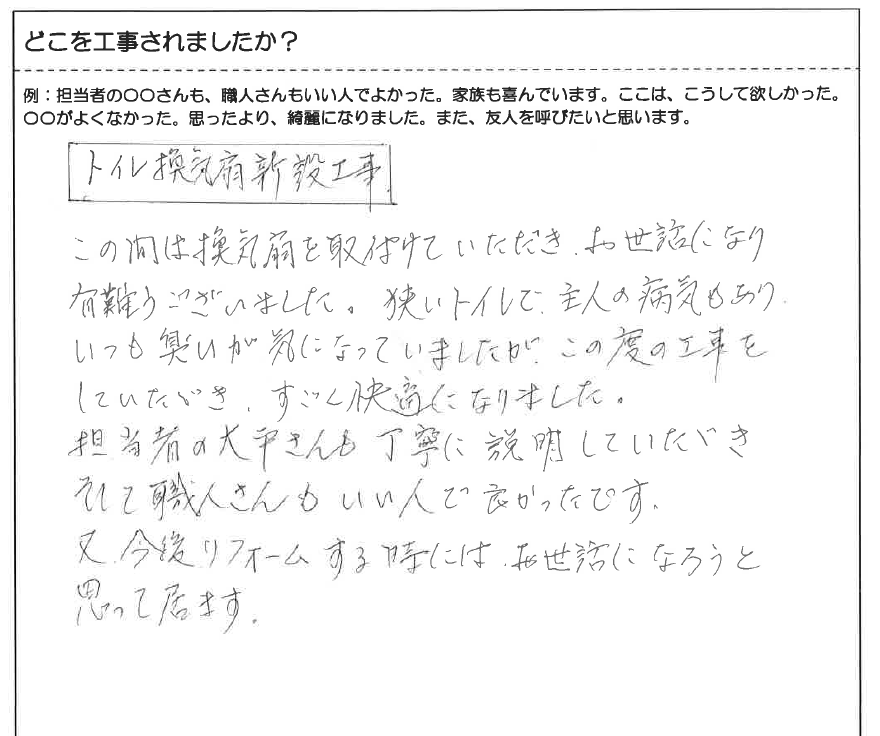 どこを工事されましたか？
例：担当者の〇〇さんも、職人さんもいい人でよかった。家族も喜んでいます。ここは、こうして欲しかった。
〇〇がよくなかった。思ったより、綺麗になりました。また、友人を呼びたいと思います。
トイレ換気扇新設工事
この間は換気扇を取付けていただき、お世話になり
有難うございました。狭いトイレで、主人の病気もあり、
いつも臭いが気になっていましたが、この度の工事を
していただき、すごく快適になりました。
担当者の大平さんも丁寧に説明していただき
そして職人さんもいい人で良かったです。
又、今後リフォームする時には、お世話になろうと
思って居ます。